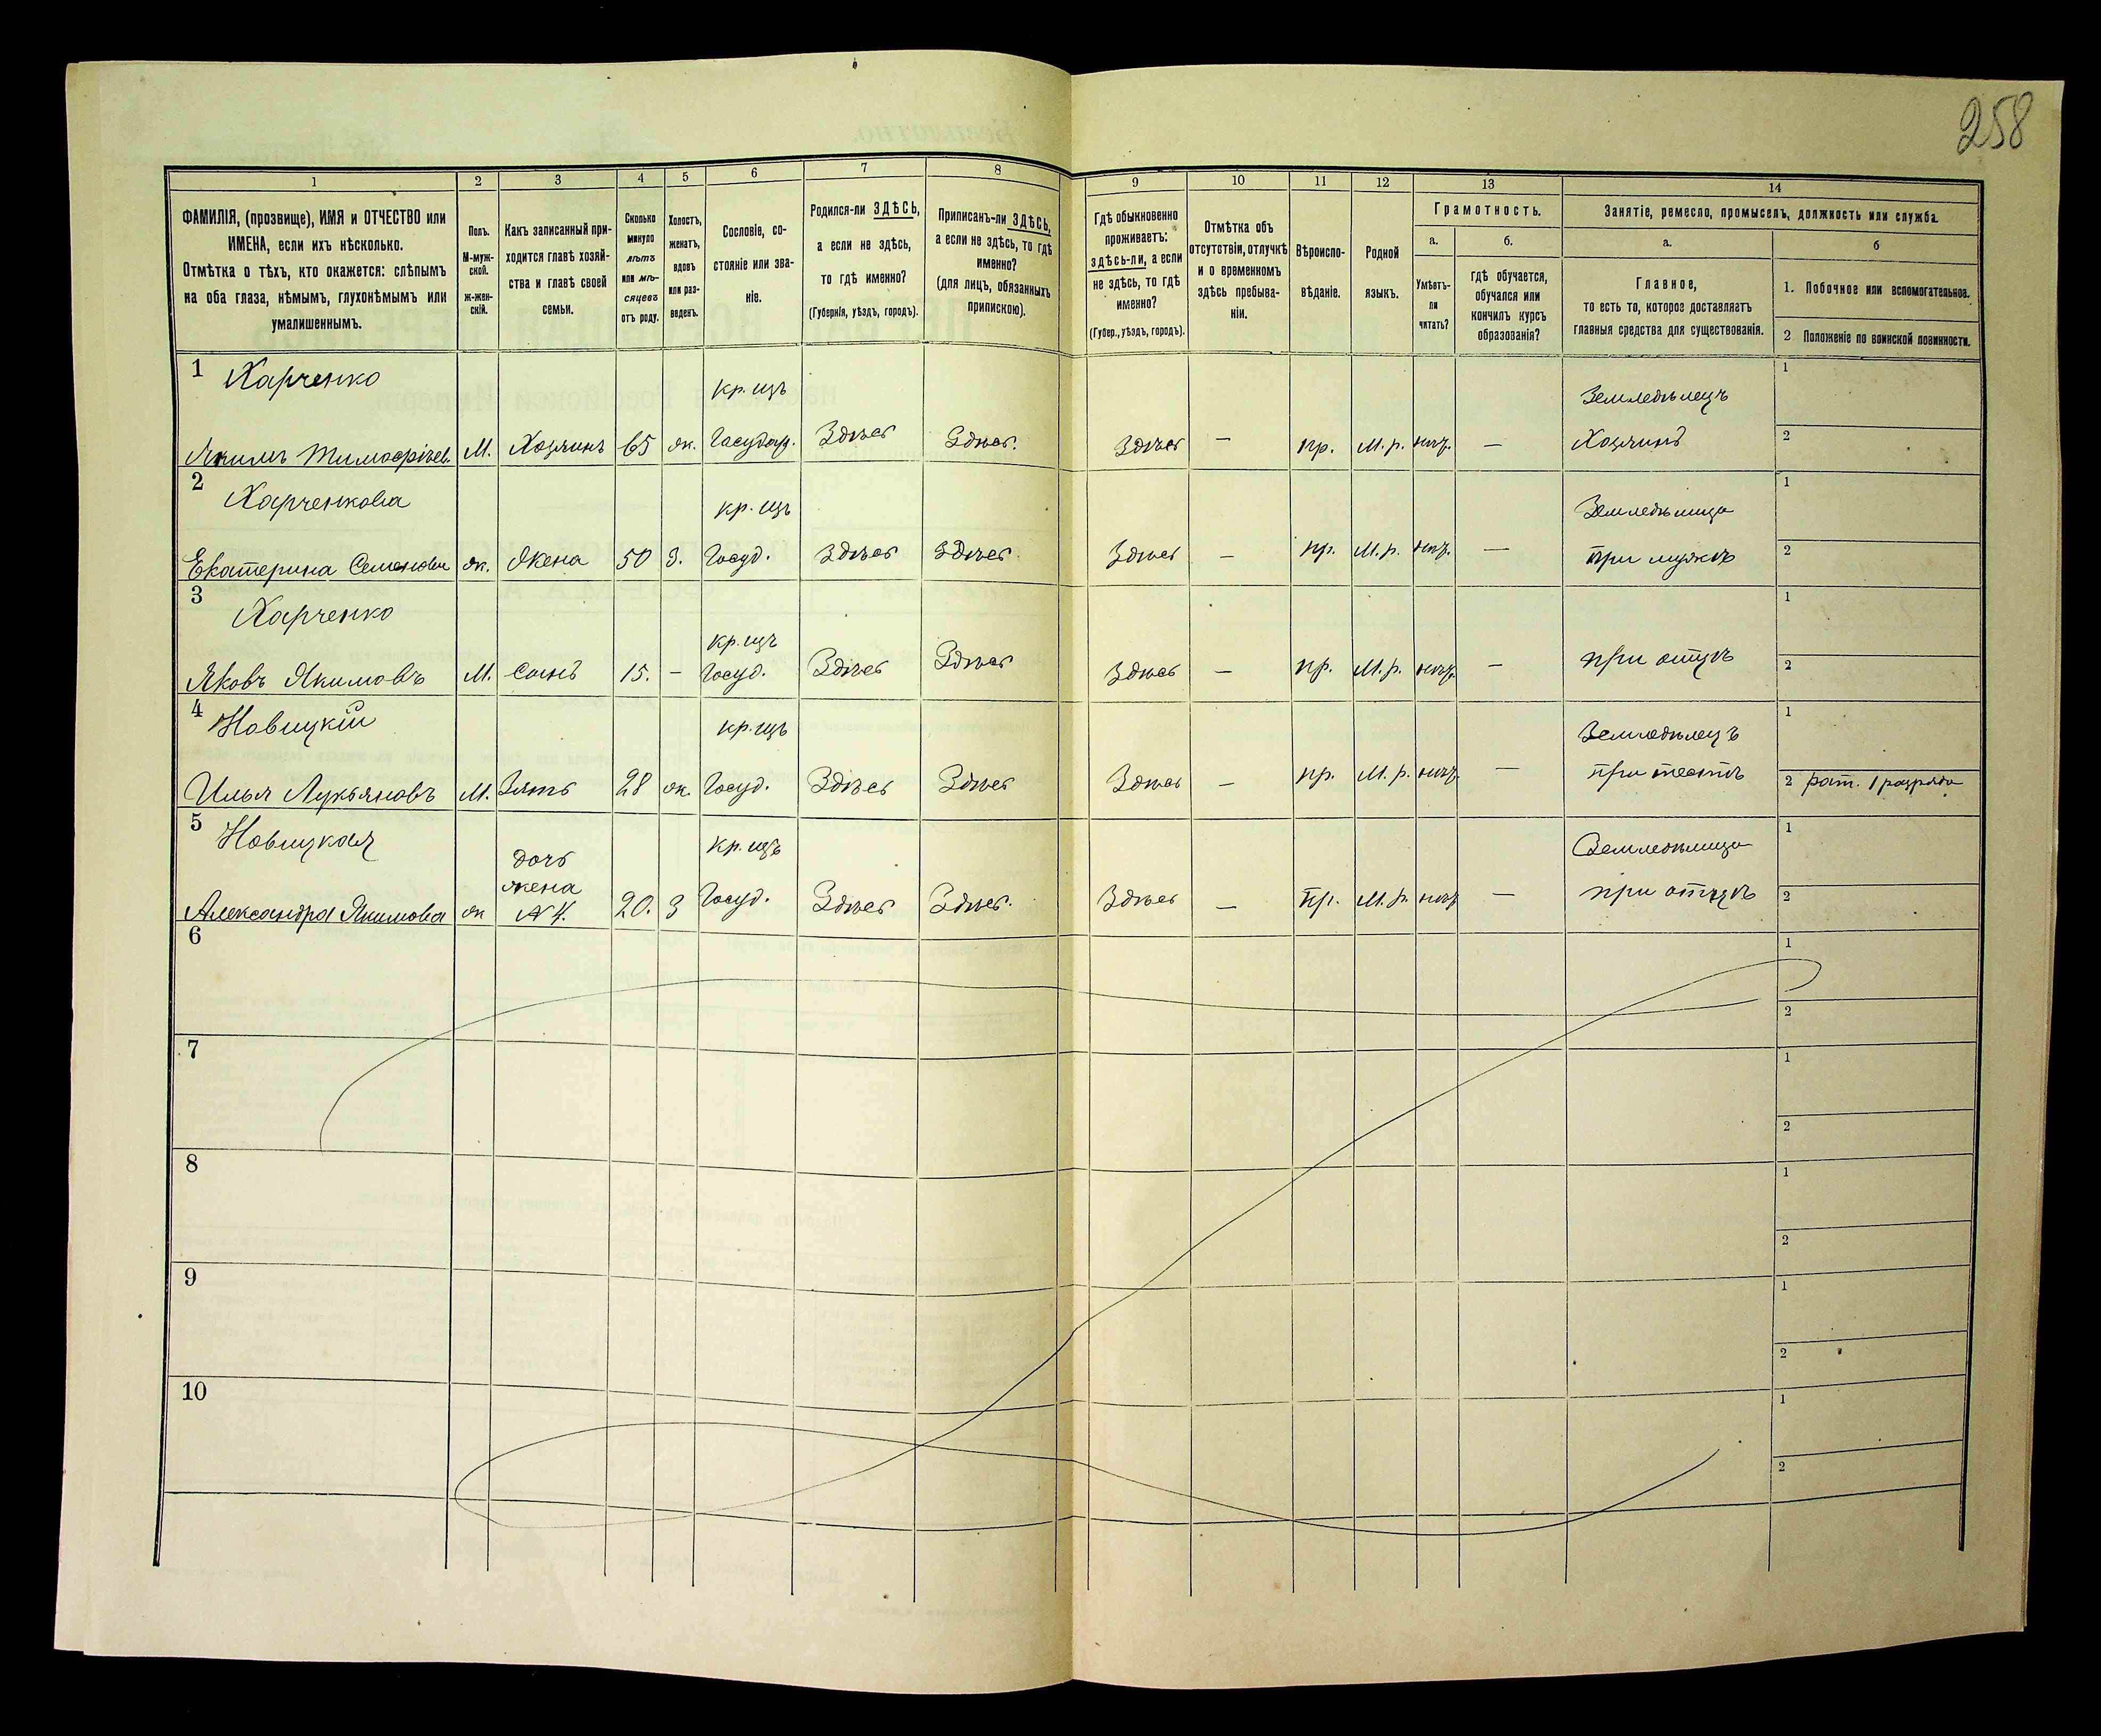 258
1 2 3 4 5 6 7 8 9 10 11 12 13 14
ФАМИЛІЯ, (прозвище), ИМЯ и ОТЧЕСТВО или
ИМЕНА, если ихъ нѣсколько.
Отмѣтка о тѣхъ, кто окажется: слѣпымъ
на оба глаза, нѣмымъ, глухонѣмымъ или
умалишеннымъ.
Полъ.
М-муж-
ской.
ж-жен-
скій.
Какъ записанный при-
ходится главѣ хозяй-
ства и главѣ своей
семьи.
Сколько
минуло
лѣтъ
или мѣ-
сяцевъ
отъ роду.
Холостъ,
женатъ,
вдовъ
или раз-
веденъ.
Сословіе, со-
стояніе или зва-
ніе.
Родился-ли ЗДѢСЬ,
а если не здѣсь,
то гдѣ именно?
(Губернія, уѣздъ, городъ).
Приписанъ-ли ЗДѢСЬ,
а если не здѣсь, то гдѣ
именно?
(для лицъ, обязанныхъ
припискою).
Гдѣ обыкновенно
проживаетъ:
здѣсь-ли, а если
не здѣсь, то гдѣ
именно?
(Губер., уѣздъ, городъ).
Отмѣтка объ
отсутствіи, отлучкѣ
и о временномъ
здѣсь пребыва-
ніи.
Вѣроиспо-
вѣданіе.
Родной
языкъ.
Грамотность.
а.
Умѣетъ-
ли
читать?
б.
гдѣ обучается,
обучался или
кончилъ курсъ
образованія?
Занятіе, ремесло, промыселъ, должность или служба.
а.
Главное,
то есть то, которое доставляетъ
главныя средства для существованія.
б
1. Побочное или вспомогательное.
2 Положеніе по воинской повинности.
1 Харченко кр. щъ Земледѣлецъ 1
Якимъ Тимофѣев. М. Хозяинъ 65 ж. Государ. Здѣсь Здѣсь. Здѣсь — пр. М. р. нѣт. — Хозяинъ 2
2 Харченкова кр. щъ Земледѣлица 1
Екатерина Семенова ж. Жена 50 З. Госуд. Здѣсь Здѣсь Здѣсь — пр. М. р. нѣт. — при мужѣ 2
3 Харченко кр. щъ 1
Яковъ Якимовъ М. Сынъ 15. – Госуд. Здѣсь Здѣсь Здѣсь — пр. М. р. нѣт. — при отцѣ 2
4 Новицкій кр. щъ Земледѣлецъ 1
Илья Лукьяновъ М. Зять 28 ж. Госуд. Здѣсь Здѣсь Здѣсь — пр. М. р. нѣт. — при тестѣ 2 рат. 1 разряда
5 Новицкая дочь кр. щъ Земледѣлица 1
жена
Александра Якимова ж № 4. 20. З Госуд. Здѣсь Здѣсь. Здѣсь — пр. М. р. нѣт — при отцѣ 2
6 1
2
7 1
2
8 1
2
9 1
2
10 1
2